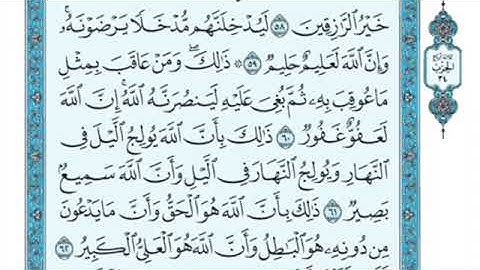 خَيْرُ ٱلرَّٰزِقِينَ ٥٨ لَيُدْخِلَنَّهُم مُّدْخَلًا يَرْضَوْنَهُۥۚ
وَإِنَّ ٱللَّهَ لَعَلِيمٌ حَلِيمٌ ٥٩ ۞ ذَٰلِكَۖ وَمَنْ عَاقَبَ بِمِثْلِ
مَا عُوقِبَ بِهِۦ ثُمَّ بُغِيَ عَلَيْهِ لَيَنصُرَنَّهُ ٱللَّهُۚ إِنَّ ٱللَّهَ
لَعَفُوٌّ غَفُورٌ ٦٠ ذَٰلِكَ بِأَنَّ ٱللَّهَ يُولِجُ ٱلَّيْلَ فِى
ٱلنَّهَارِ وَيُولِجُ ٱلنَّهَارَ فِى ٱلَّيْلِ وَأَنَّ ٱللَّهَ سَمِيعٌۢ
بَصِيرٌ ٦١ ذَٰلِكَ بِأَنَّ ٱللَّهَ هُوَ ٱلْحَقُّ وَأَنَّ مَا يَدْعُونَ
مِن دُونِهِۦ هُوَ ٱلْبَٰطِلُ وَأَنَّ ٱللَّهَ هُوَ ٱلْعَلِىُّ ٱلْكَبِيرُ ٦٢
الحزب
٣٤